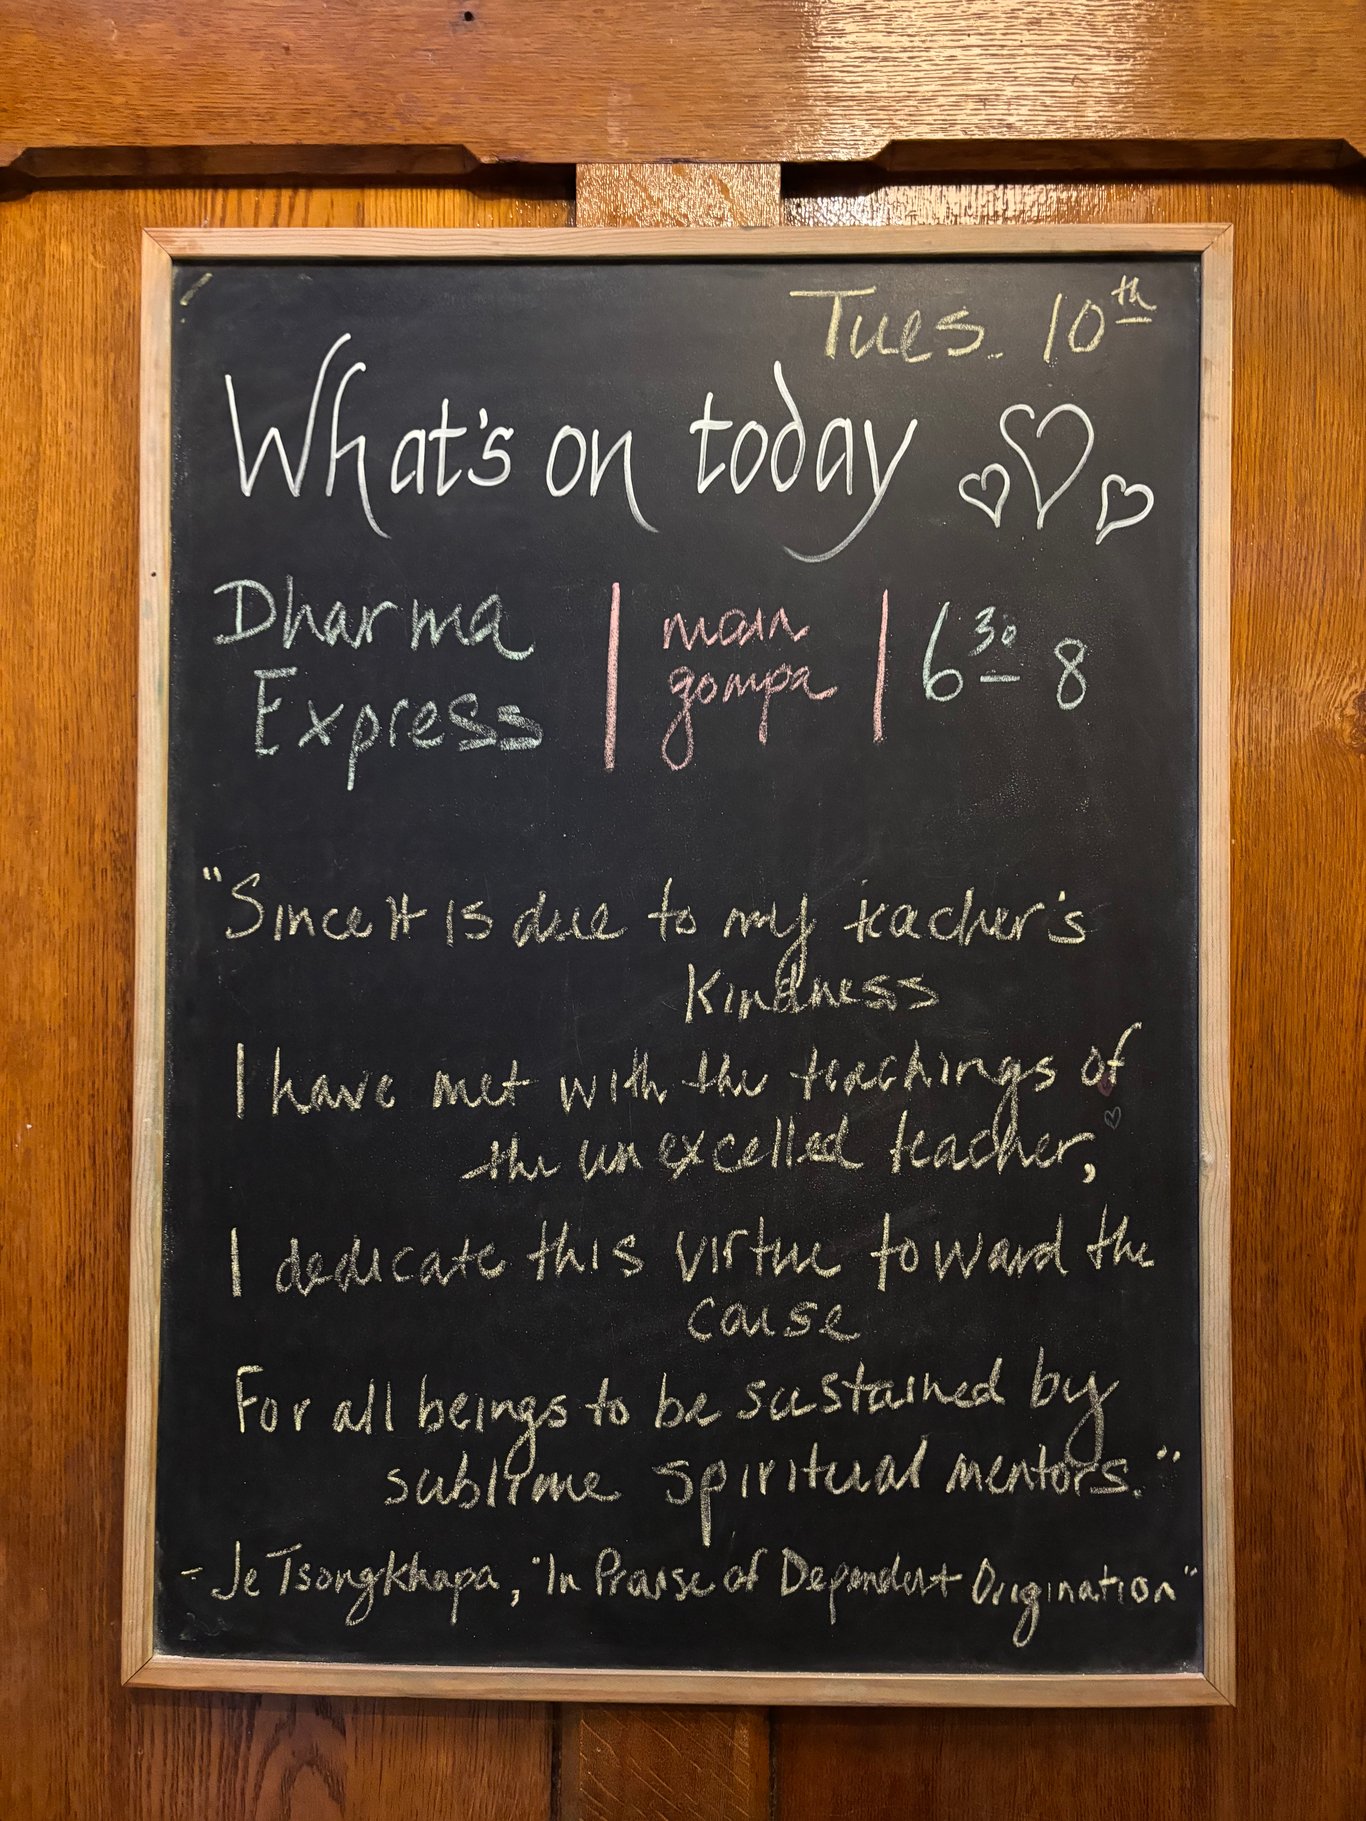 Tues. 10th
What's on today
Dharma Express | main gompa | 6 30 - 8
"Since it is due to my teacher's
kindness
I have met with the teachings of
the unexcelled teacher,
I dedicate this virtue toward the
cause
For all beings to be sustained by
sublime spiritual mentors."
- Je Tsongkhapa, "In Praise of Dependent Origination"